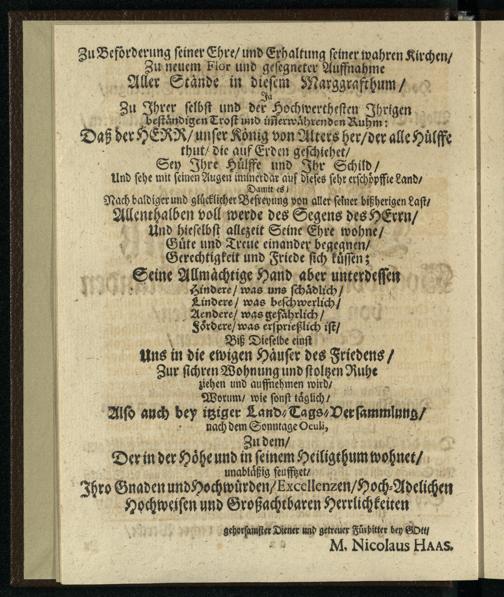 Zu Beförderung seiner Ehre/ und Erhaltung seiner wahren Kirchen/
Zu neuem Flor und gesegneter Auffnahme
Aller Stände in diesem Marggrafthum/
Ja
Zu Ihrer selbst und der Hochwerthesten Ihrigen
beständigen Trost und im̃erwährenden Ruhm:
Daß der HERR/ unser König von Alters her/ der alle Hülffe
thut/ die auf Erden geschiehet/
Sey Ihre Hülffe und Ihr Schild/
Und sehe mit seinen Augen immerdar auf dieses sehr erschöpffte Land/
Damit es/
Nach baldiger und glücklicher Befreyung von aller seiner bißherigen Last/
Allenthalben voll werde des Segens des HErrn/
Und hieselbst allezeit Seine Ehre wohne/
Güte und Treue einander begegnen/
Gerechtigkeit und Friede sich küssen;
Seine Allmächtige Hand aber unterdessen
Hindere/ was uns schädlich/
Lindere/ was beschwerlich/
Aendere/ was gefährlich/
Fördere/ was ersprießlich ist/
Biß Dieselbe einst
Uns in die ewigen Häuser des Friedens/
Zur sichren Wohnung und stoltzen Ruhe
ziehen und auffnehmen wird/
Worum/ wie sonst täglich/
Also auch bey itziger Land-Tags-Versammlung/
nach dem Sonntage Oculi,
Zu dem/
Der in der Höhe und in seinem Heiligthum wohnet/
unabläßig seufftzet/
Ihro Gnaden und Hochwürden/ Excellenzen/ Hoch-Adelichen
Hochweisen und Großachtbaren Herrlichkeiten
gehorsamster Diener und getreuer Fürbitter bey GOtt/
M. Nicolaus HAAS.